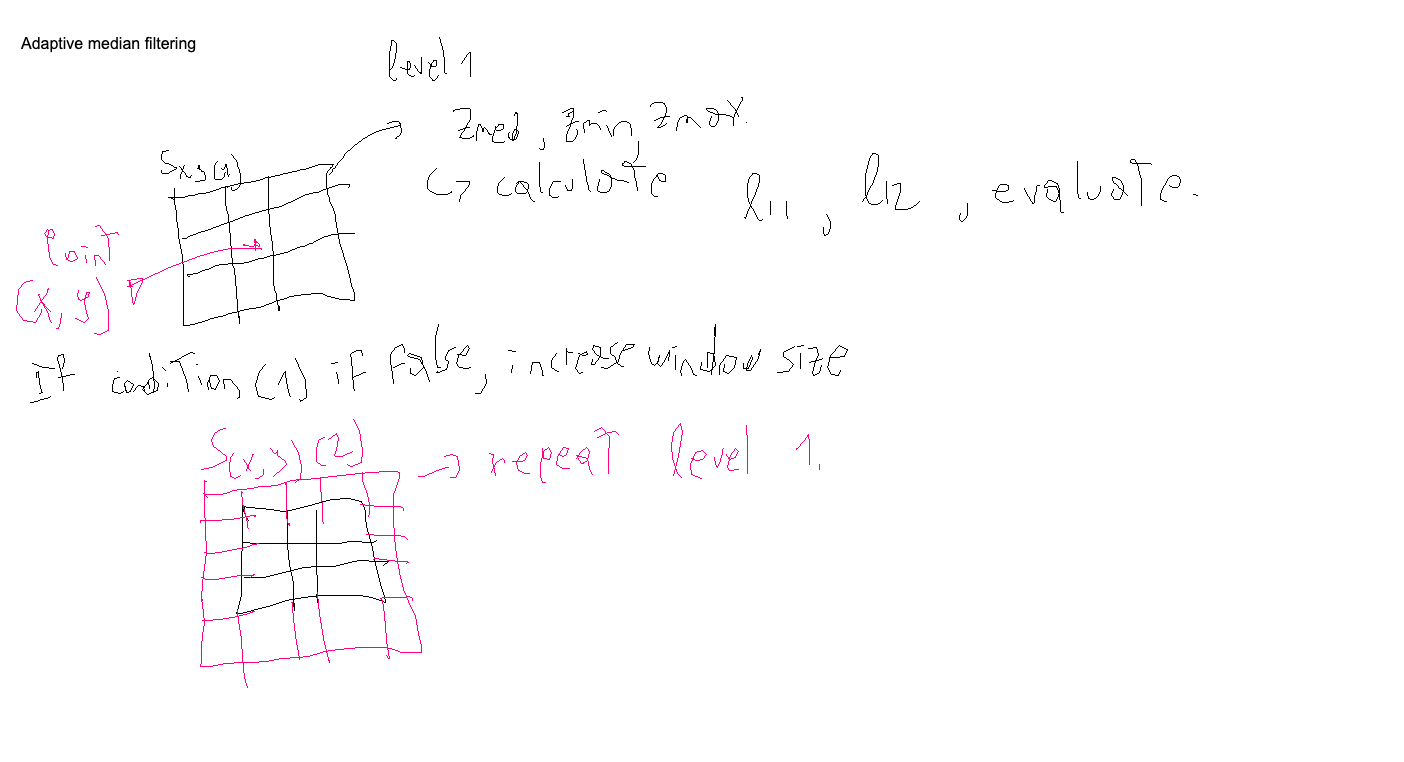 Adaptive median filtering
level 1
Zmed, Zmin, Zmax.
↪ calculate
l11, l12, evaluate.
Sxy(1)
Point
(x, y)
If condition (1) if False, increase window size
S(x,y) (2)
→ repeat level 1.